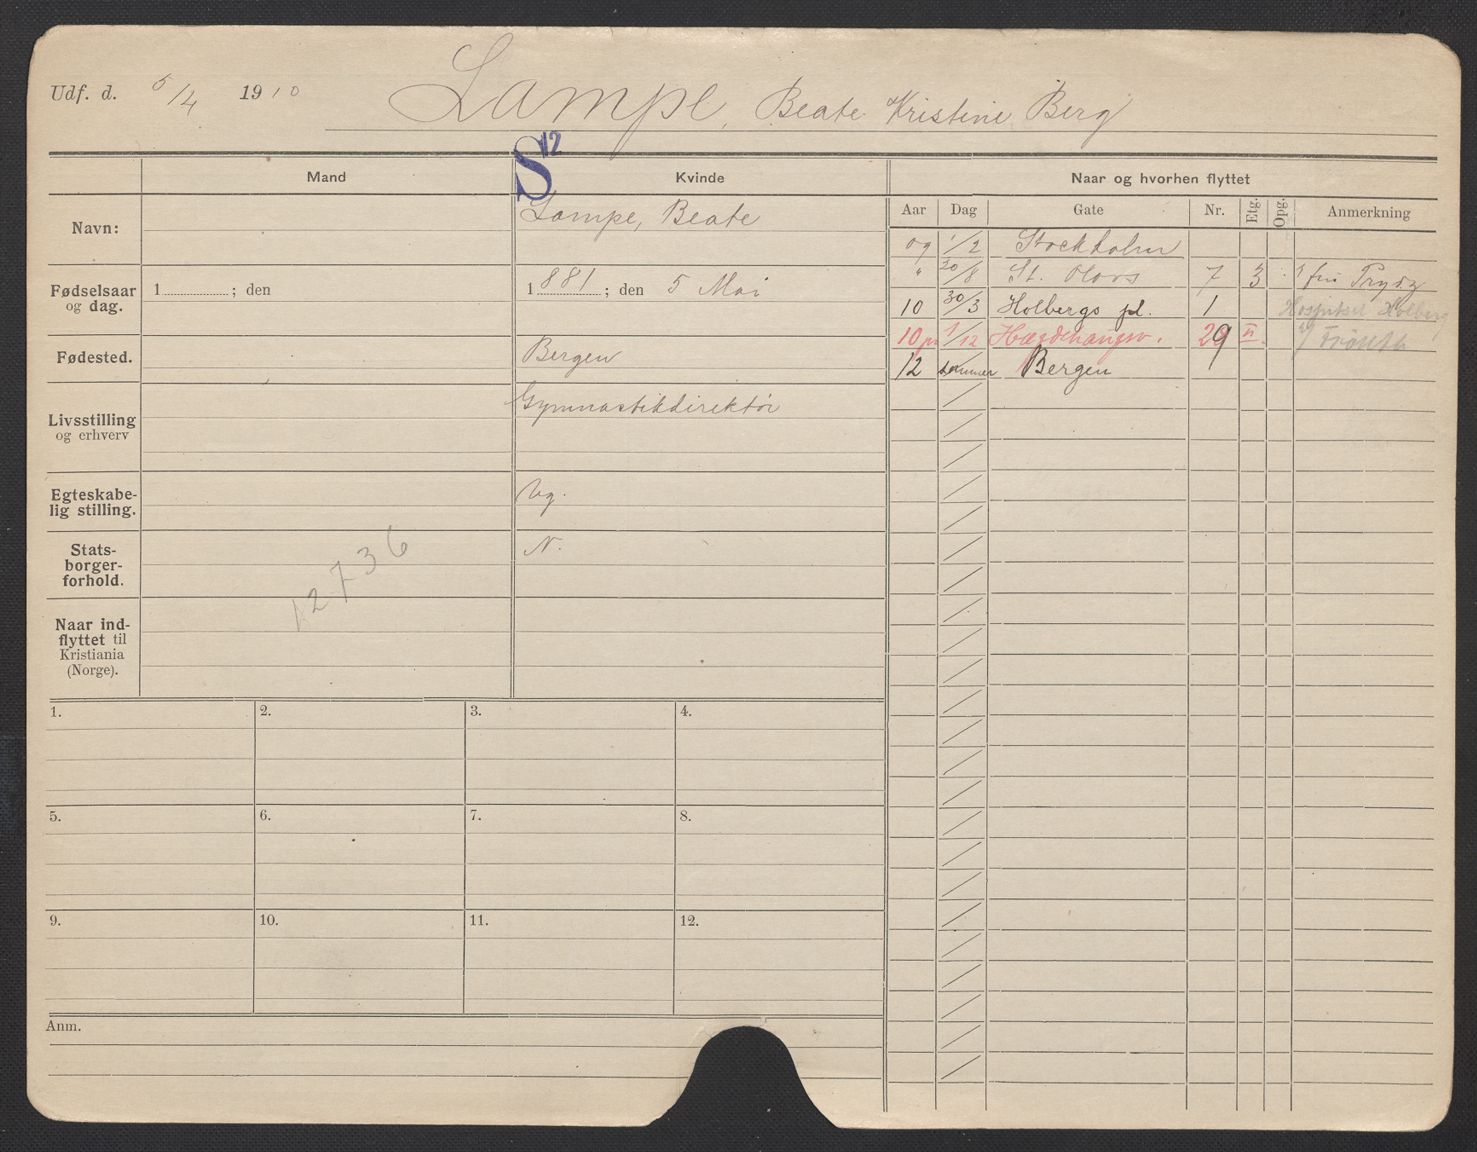 Udf. d. 5/4 1910 Lampe, Beate Kristine Berg
S 12
Mand Kvinde Naar og hvorhen flyttet
Navn: Lampe, Beate
Fødselsaar og dag. 1 ; den 1881 ; den 5 Mai
Fødested. Bergen
Livsstilling og erhverv Gymnastikdirektør
Egteskabe-
lig stilling. Ug.
Stats-
borger-
forhold. N.
12736
Naar ind-
flyttet til
Kristiania
(Norge).
Aar Dag Gate Nr. Etg. Opg. Anmerkning
09 1/2 Stockholm
" 20/8 St. Olavs 7 3 frú Prydz
10 30/3 Holbergs pl. 1 Hospitset Holberg
10 1/12 Hægdehaugsv. 29 II
12 sommer Bergen
1. 2. 3. 4.
5. 6. 7. 8.
9. 10. 11. 12.
Anm.